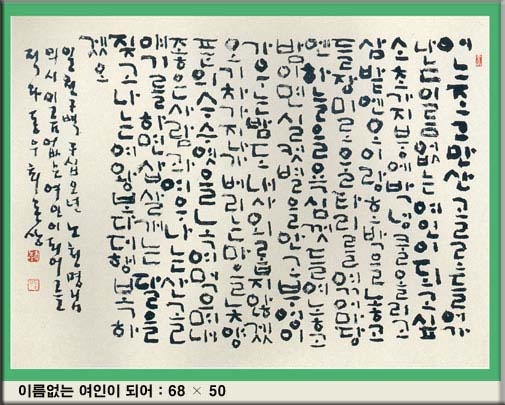 어느조그만산골로들어가
나는이름없는여인이되고싶
소초가지붕에박넝쿨올리고
삼밭엔오이랑호박을놓고
들장미로울타리를엮어마당
엔하늘을욕심껏들여놓고
밤이면실컷별을안고부엉이
가우는밤도내사외롭지않겠
오기차가지나가버리는마을놋양
푼의수수엿을녹여먹으며
좋은사람과여우나는산골
얘기를하면삽살개는달을
짖고나는여왕보다더행복하
겠오
일천구백구십오년 노천명님
의시이름없는여인이되어를
이름없는 여인이 되어 : 68 × 50